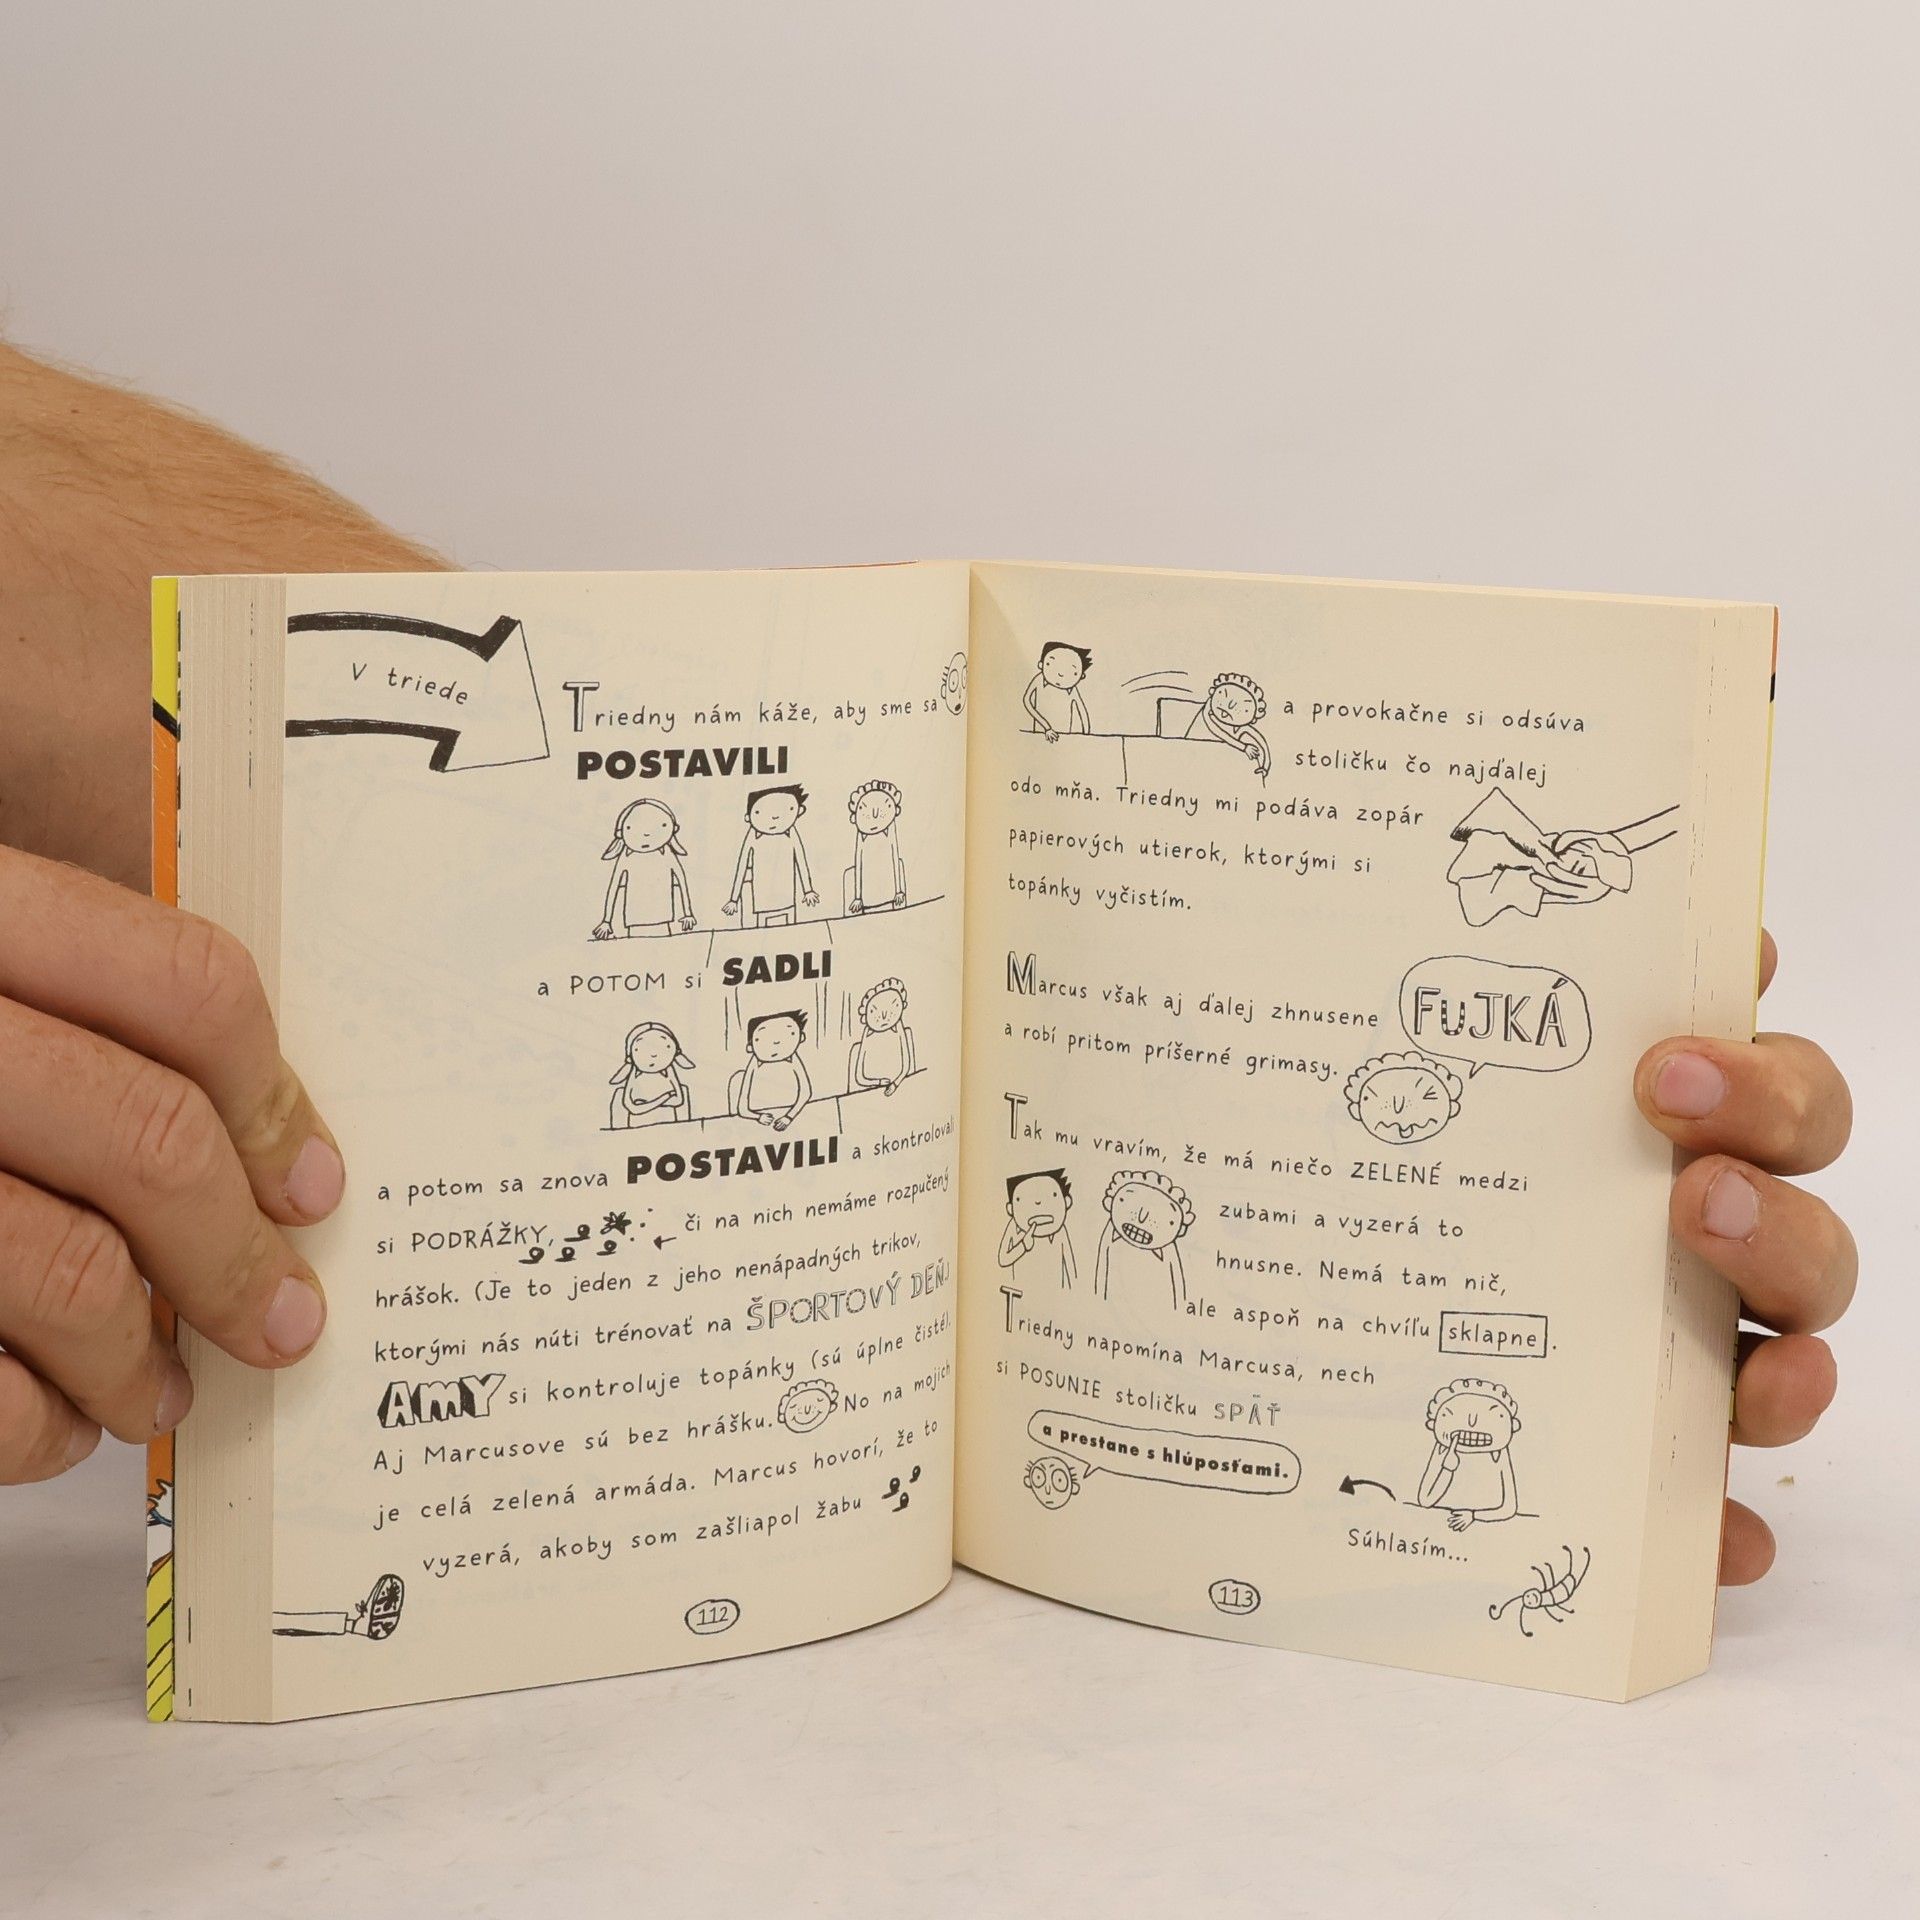 V triede
Triedny nám káže, aby sme sa
POSTAVILI
a POTOM si SADLI
a potom sa znova POSTAVILI a skontrolovali
si PODRÁŽKY, či na nich nemáme rozpučený
hrášok. (Je to jeden z jeho nenápadných trikov,
ktorými nás núti trénovať na ŠPORTOVÝ DEŇ.)
AMY si kontroluje topánky (sú úplne čisté).
Aj Marcusove sú bez hrášku. No na mojich
je celá zelená armáda. Marcus hovorí, že to
vyzerá, akoby som zašliapol žabu
112
a provokačne si odsúva
stoličku čo najďalej
odo mňa. Triedny mi podáva zopár
papierových utierok, ktorými si
topánky vyčistím.
Marcus však aj ďalej zhnusene
FUJKÁ
a robí pritom príšerné grimasy.
Tak mu vravím, že má niečo ZELENÉ medzi
zubami a vyzerá to
hnusne. Nemá tam nič,
ale aspoň na chvíľu sklapne.
Triedny napomína Marcusa, nech
si POSUNIE stoličku SPÄŤ
a prestane s hlúposťami.
Súhlasím...
113